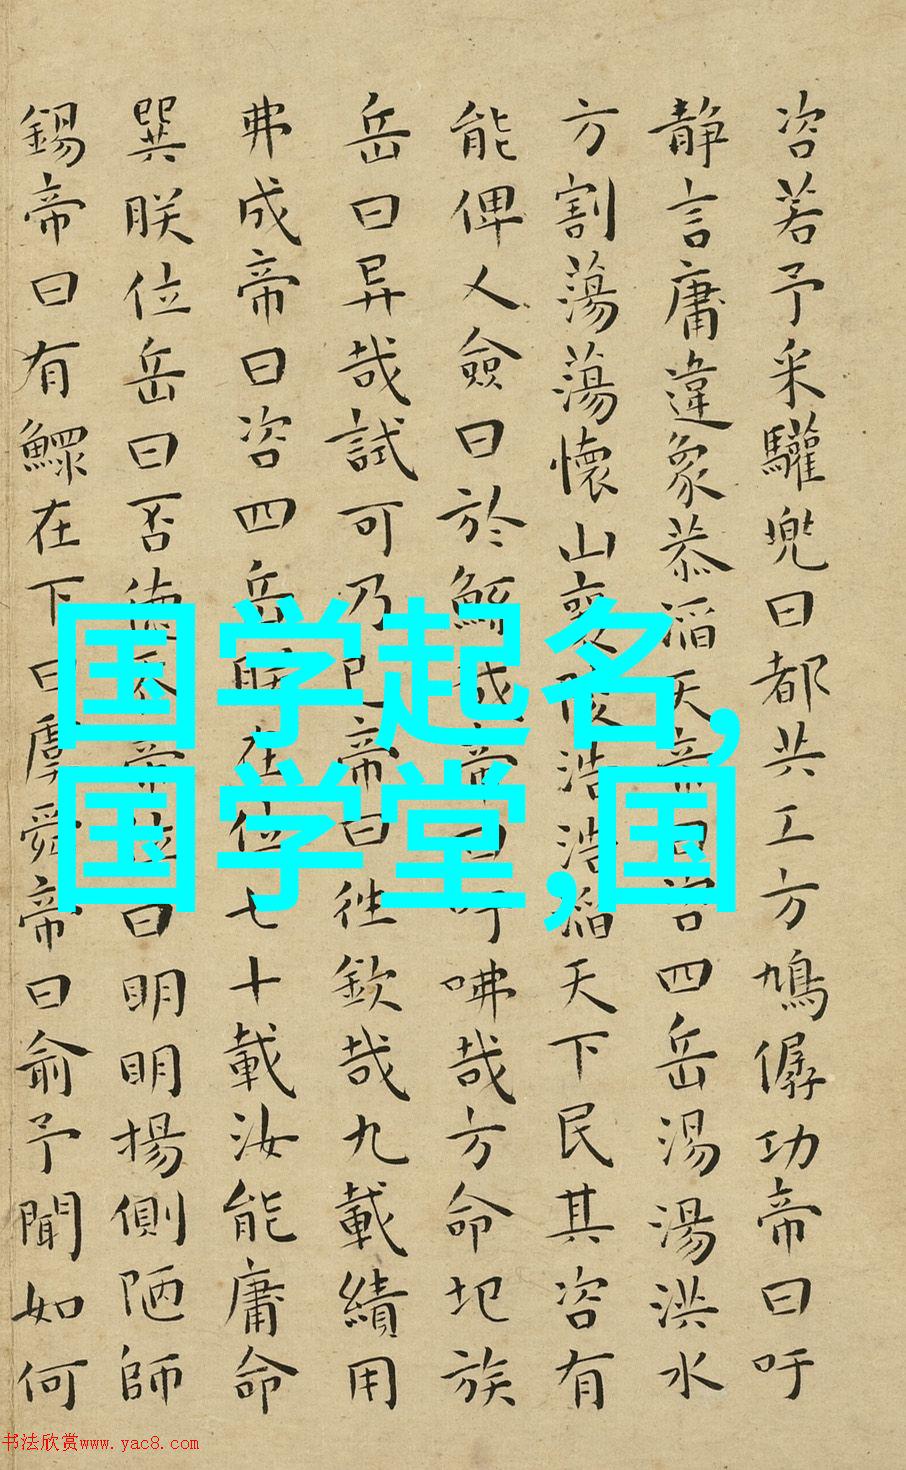 咨若予采驩兜曰都共工方鳩僝功帝曰吁
静言庸違象恭滔天帝曰咨四岳湯湯洪水
方割蕩蕩懷山襄陵浩浩滔天下民其咨有
能俾乂僉曰於鯀哉帝曰吁咈哉方命圯族
岳曰异哉試可乃已帝曰往欽哉九載績用
弗成帝曰咨四岳朕在位七十載汝能庸命
巽朕位岳曰否德忝帝位曰明明揚側陋師
錫帝曰有鰥在下曰虞舜帝曰俞予聞如何
国学起名,
国学堂,国
书法欣赏www.yac8.com